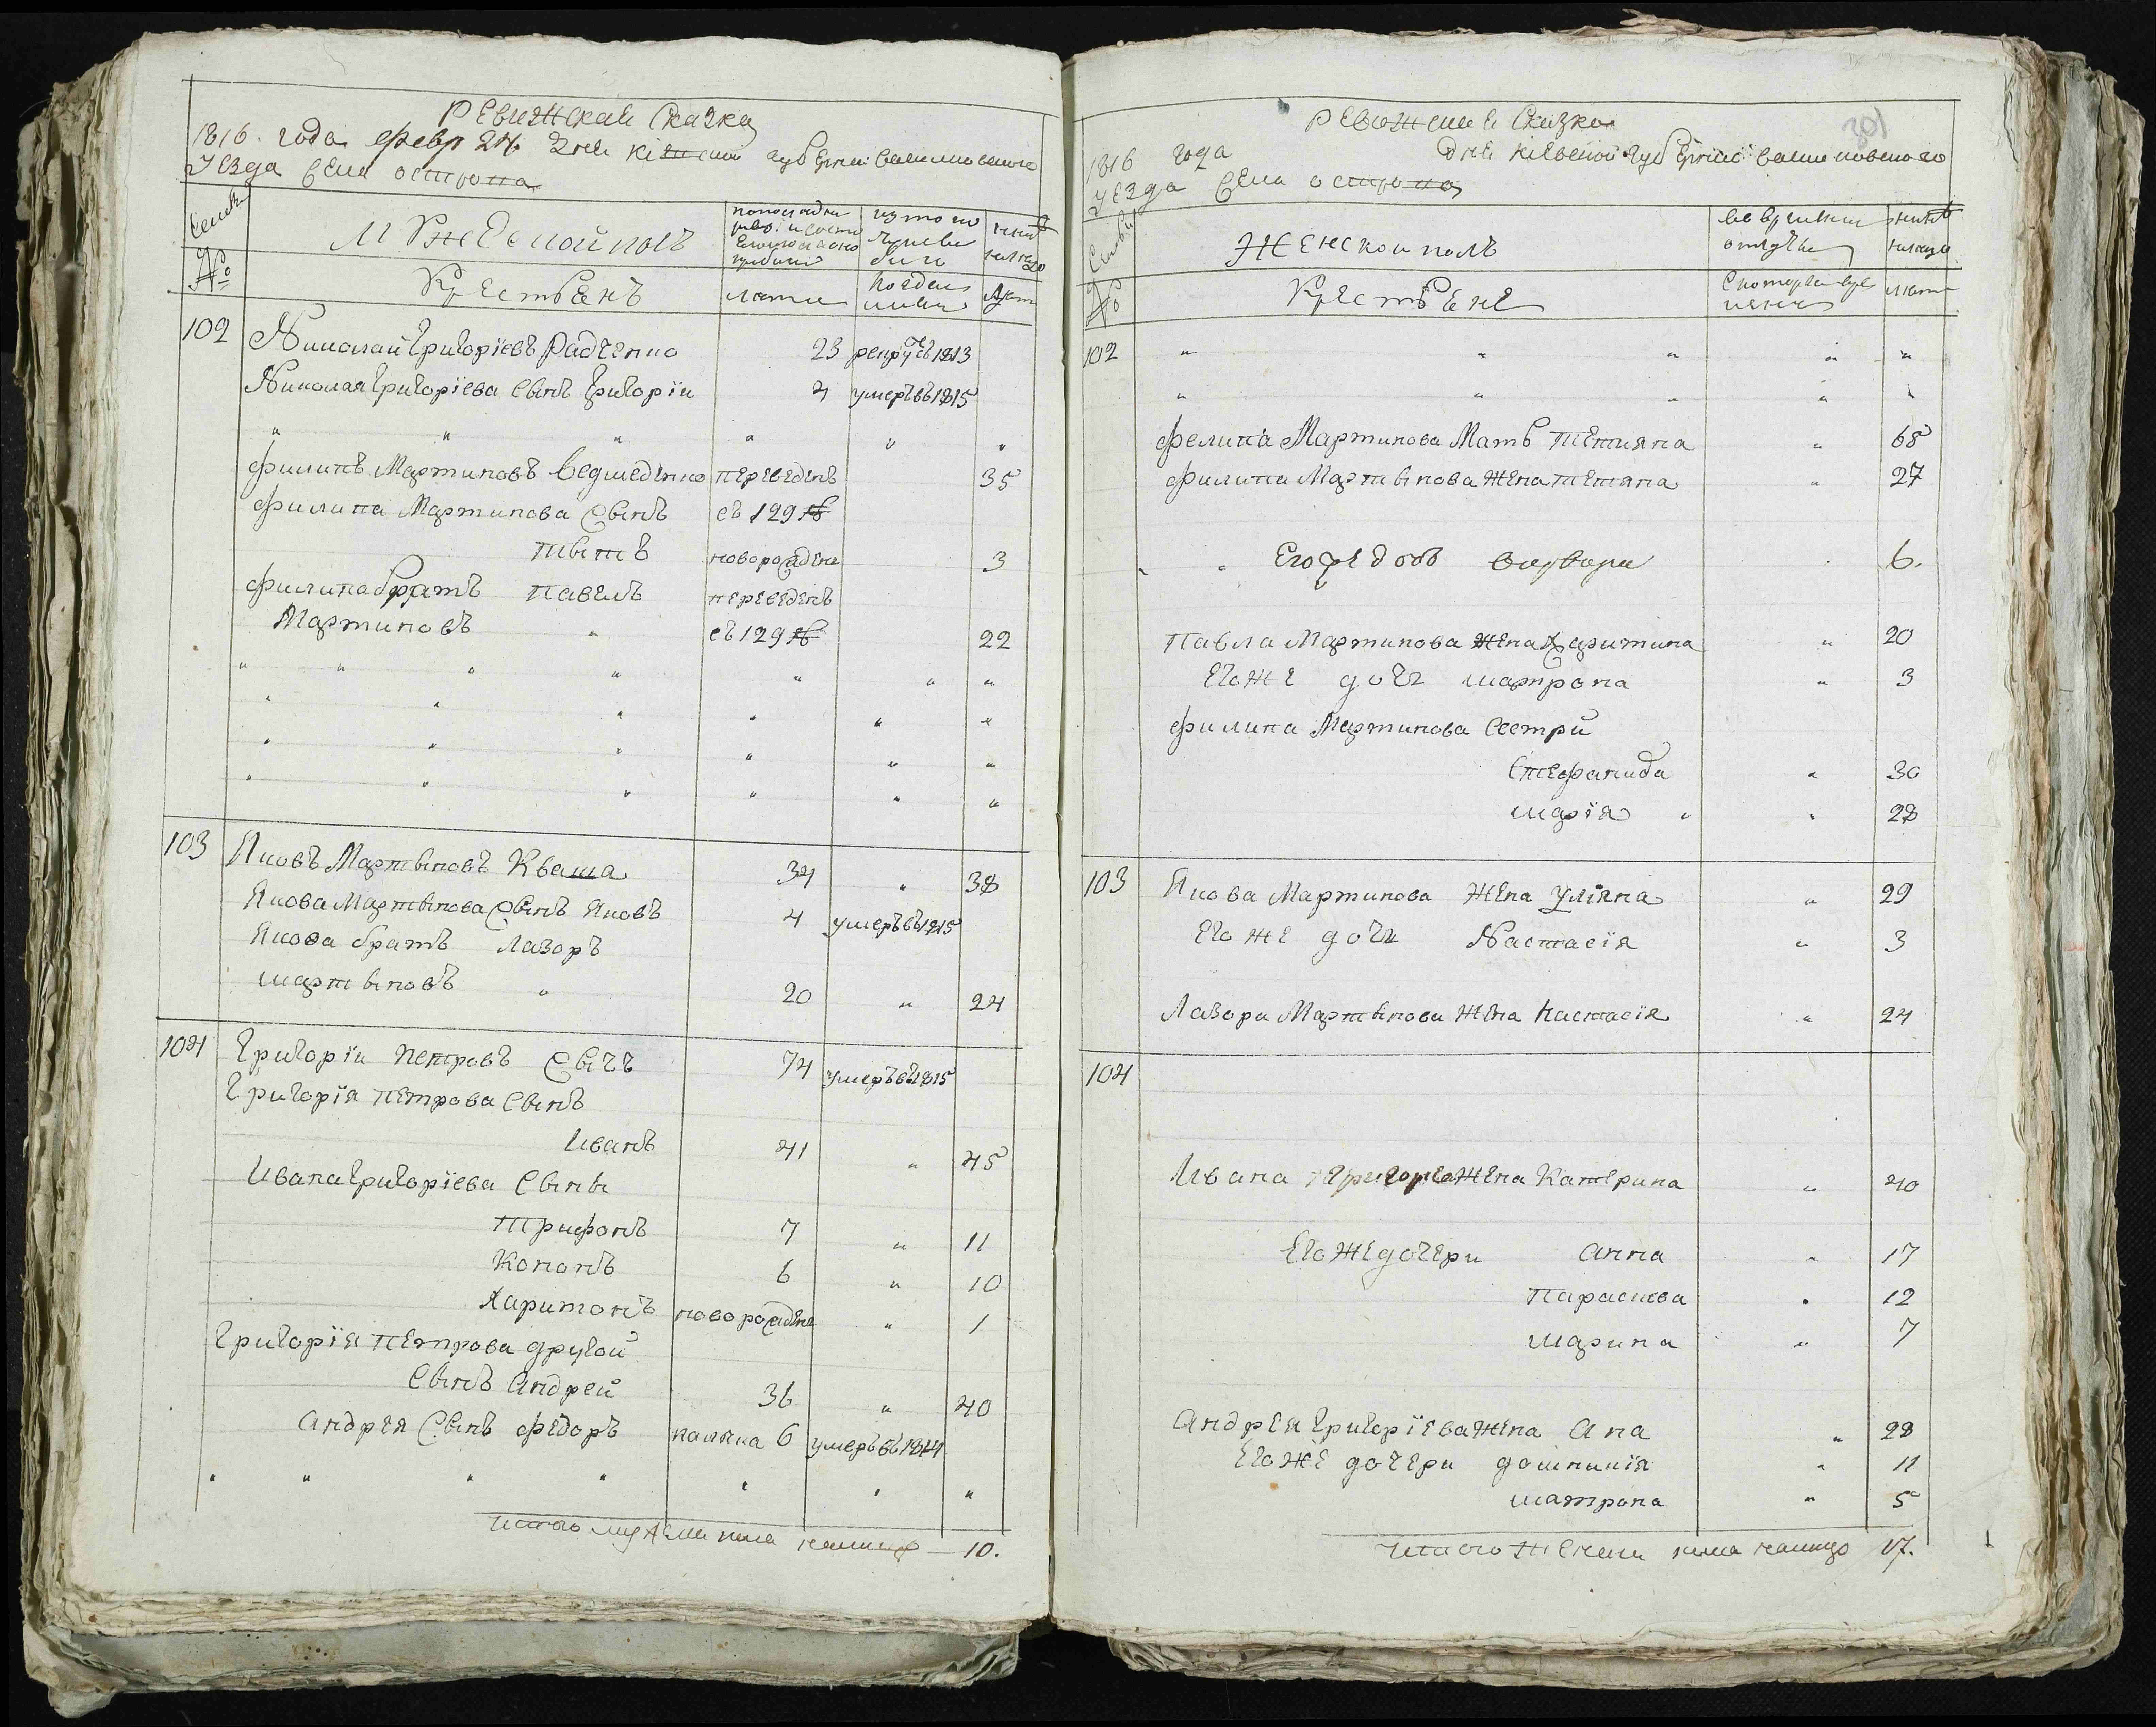 Ревижская Сказка
1816. года февр 24 дня Кіевской губернии васильковского
уезда села острова
семей
№
Мужеской полъ
Крестьянъ
по последней ревизіи состояло
лета
изъ того числа выбыло
когда именно
ныне на лицо
лета
102
Николай Григоріевъ Радченко 23 рекрутъ 1813
Николая Григоріева Сынъ Григорій 4 умеръ въ 1815
" " " " " "
Филипъ Мартиновъ Ведмеденко переведенъ 35
Филипа Мартинова Сынъ съ 129 №
Титъ новорожденъ 3
Филипа братъ Павелъ переведенъ
Мартиновъ " съ 129 № 22
" " " " " " "
" " " " " "
" " " " " "
" " " " " "
103
Яковъ Мартыновъ Кваша 34 " 38
Якова Мартынова Сынъ Яковъ 4 умеръ въ 1815
Якова братъ Лазоръ
Мартыновъ " 20 " 24
104
Григорій Петровъ Сычъ 74 умеръ въ 1815
Григорія Петрова Сынъ
Иванъ 41 " 45
Ивана Григоріева Сыны
Трифонъ 7 " 11
Кононъ 6 " 10
Харитонъ новорожденъ " 1
Григорія Петрова другой
Сынъ Андрей 36 " 40
Андрея Сынъ Федоръ 6 умеръ въ 1814
" " " " " " "
итого мужеска пола налицо 10.
301
Ревижская Сказка
1816 года дня Кіевской губерніи васильковского
уезда села острова
семей
№
Женской полъ
Крестьяне
во временной отлучке
с которого времени
ныне налицо
лета
102 " " " " "
" " " " "
Фелипа Мартинова Мать Тетяна " 68
Филипа Мартынова жена Тетяна " 27
" " Его ж дочь варвара 6.
Павла Мартинова жена Харитина " 20
Его же дочь матрона " 3
Филипа Мартинова Сестри
Стефанида " 30
Марія " " 28
103 Якова Мартинова жена Уліяна " 29
Его же дочь Настасія " 3
Лазора Мартынова жена Настасія " 24
104
Ивана Григорія жена Катерина " 40
Его же дочери Анна " 17
Параскева " 12
Марина " 7
Андрея Григоріева жена Ана " 28
Его же дочери домникія " 11
Матрона " 5
итого женска пола налицо 17.